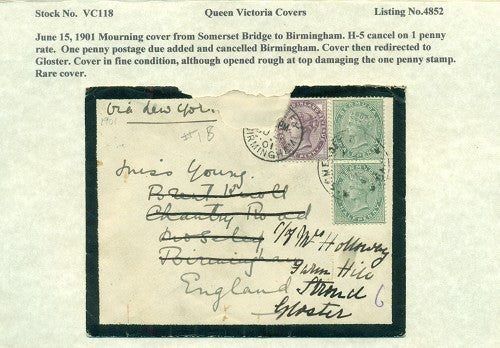 Stock No. VC118 Queen Victoria Covers Listing No.4852
June 15, 1901 Mourning cover from Somerset Bridge to Birmingham. H-5 cancel on 1 penny
rate. One penny postage due added and cancelled Birmingham. Cover then redirected to
Gloster. Cover in fine condition, although opened rough at top damaging the one penny stamp.
Rare cover.
Via New York
BIRMINGHAM
01
Miss Young.
Brent Knoll
Chantry Road
Moseley
Birmingham
England
c/o Mrs Holloway
Farm Hill
Stroud
Gloster
6